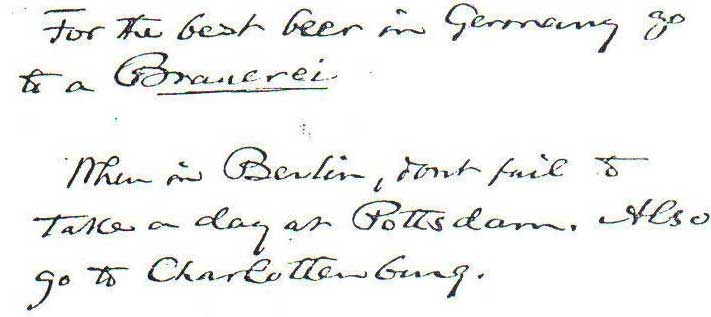 For the best beer in Germany go
to a Brauerei
When in Berlin, dont fail to
take a day at Pottsdam. Also
go to Charlottenburg.